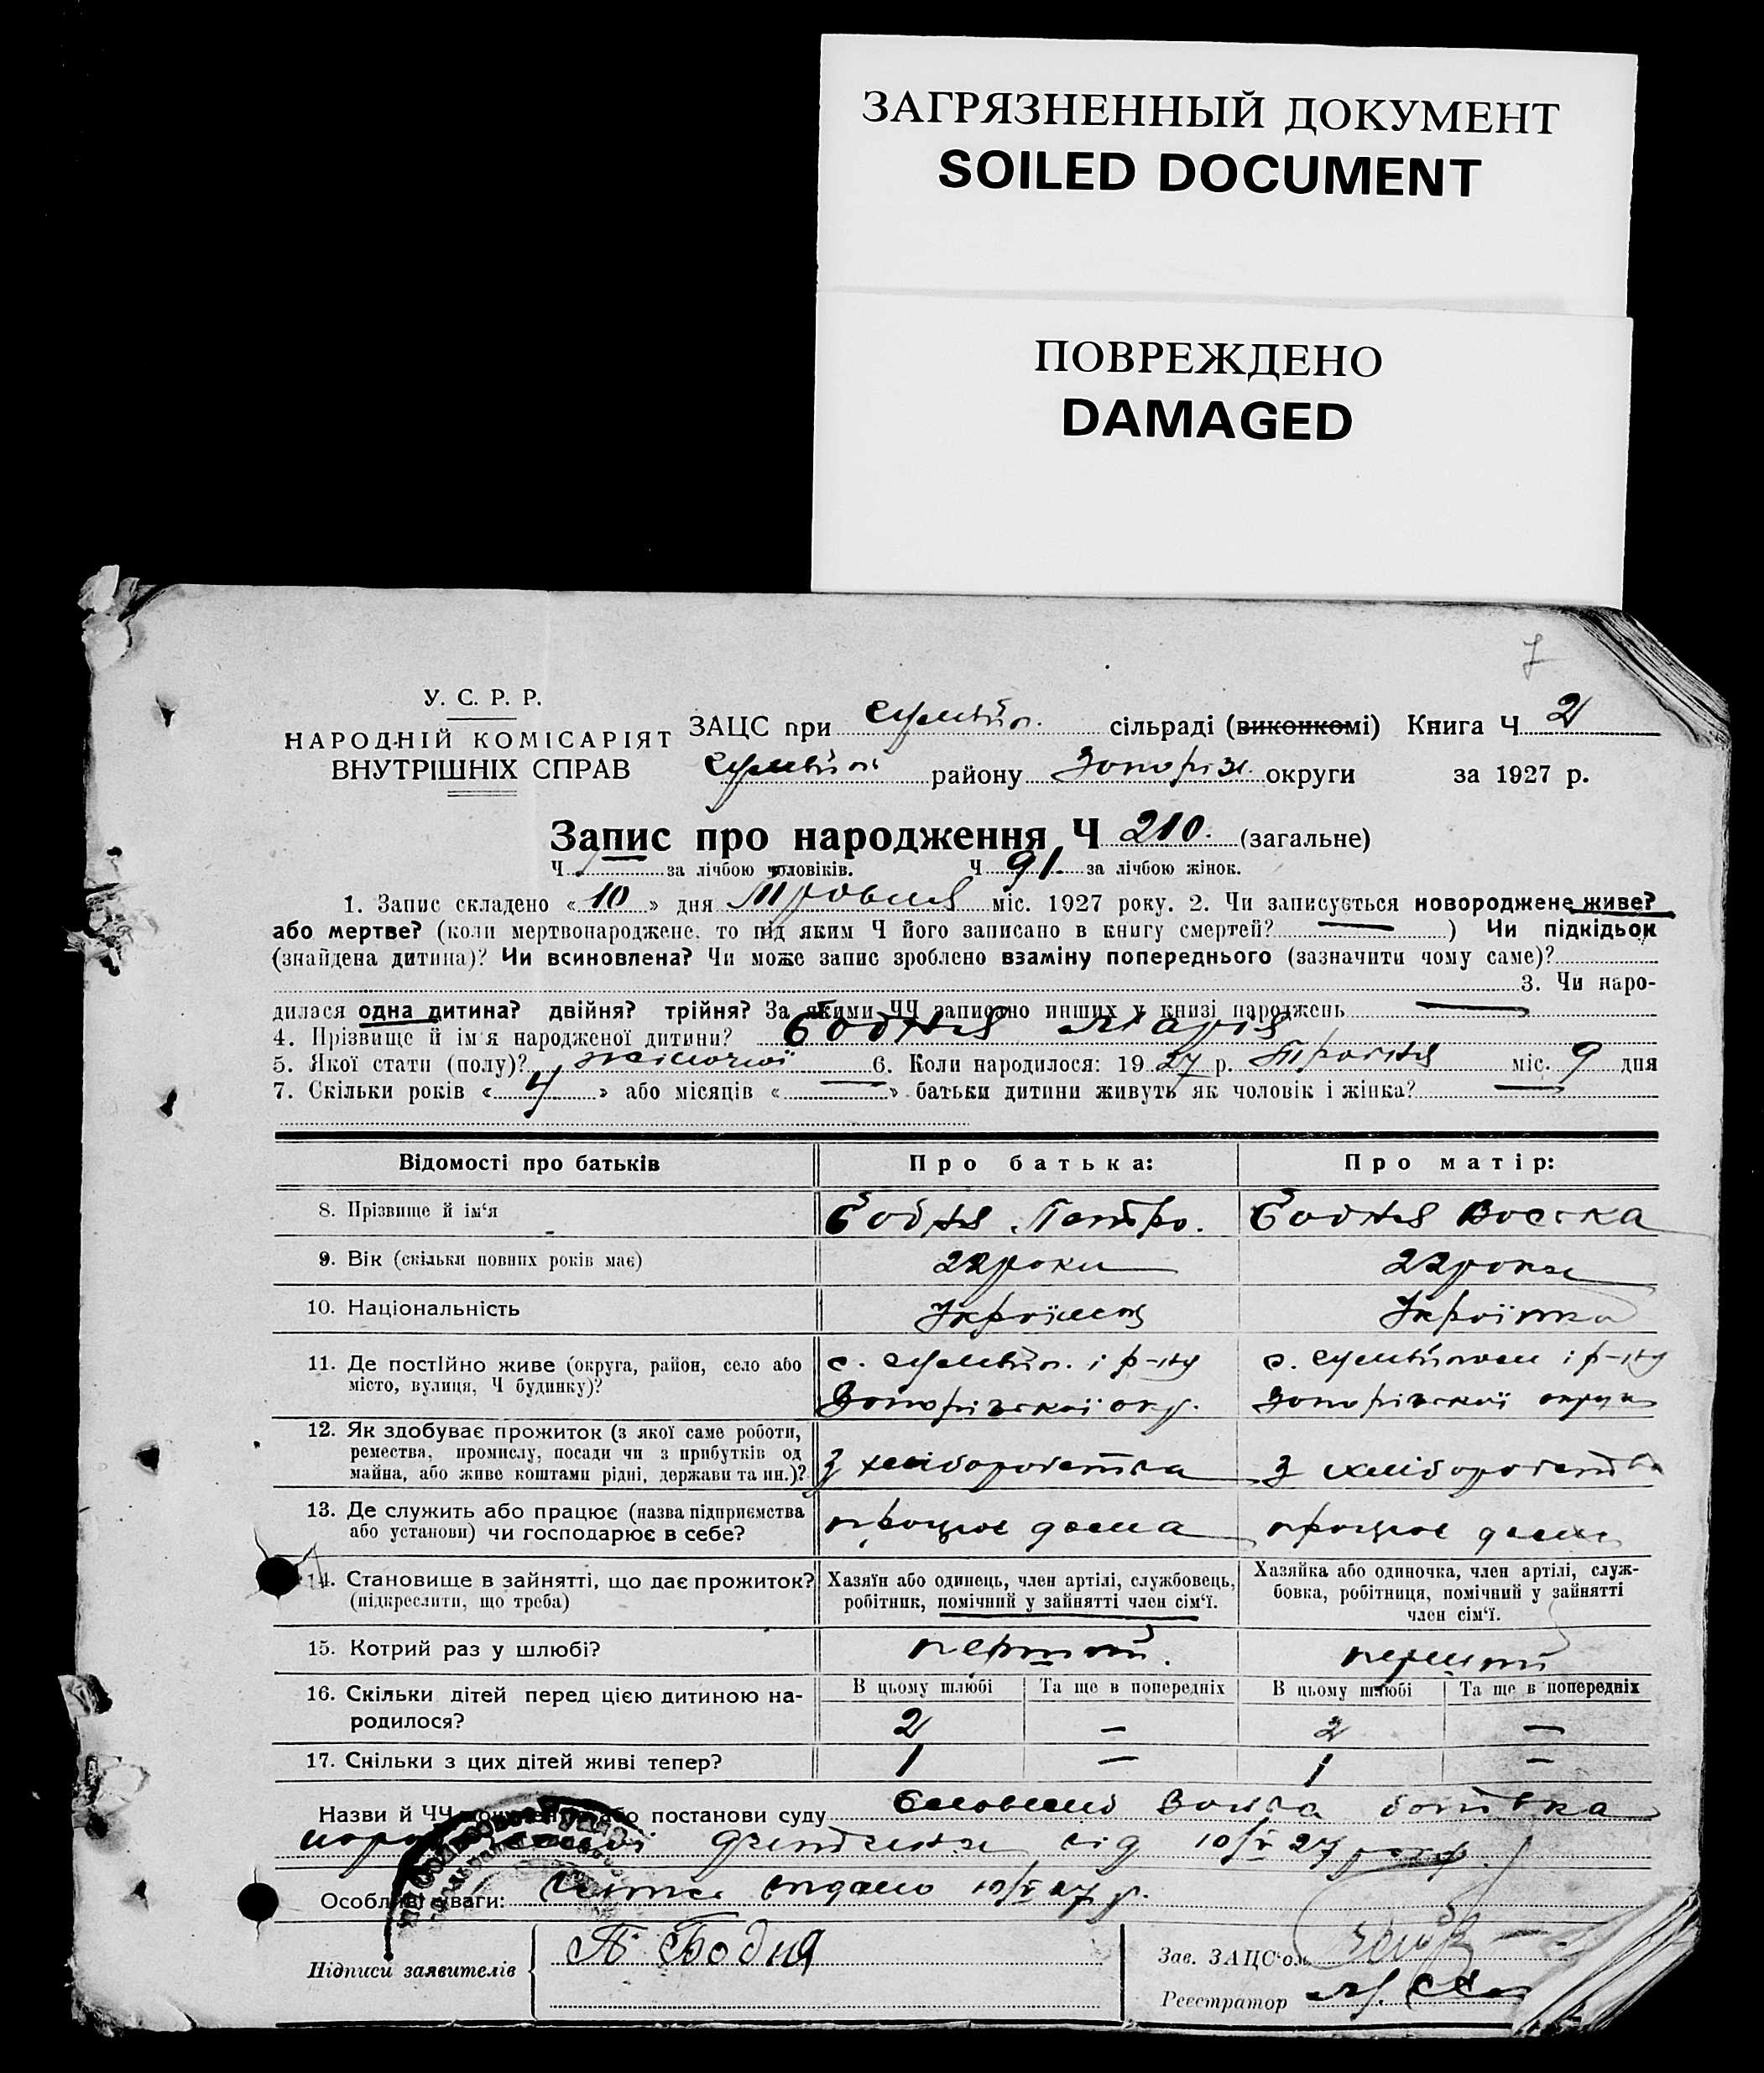 ЗАГРЯЗНЕННЫЙ ДОКУМЕНТ
SOILED DOCUMENT
ПОВРЕЖДЕНО
DAMAGED
7
У. С. Р. Р.
НАРОДНІЙ КОМІСАРІЯТ
ВНУТРІШНІХ СПРАВ
ЗАЦС при сільраді (виконкомі) Книга Ч 2
району Запоріз. округи за 1927 р.
Запис про народження Ч 210. (загальне)
Ч за лічбою чоловіків. Ч 91. за лічбою жінок.
1. Запис складено « 10 » дня Травня міс. 1927 року. 2. Чи записується новороджене живе?
або мертве? (коли мертвонароджене, то під яким Ч його записано в книгу смертей? — ) Чи підкідьок
(знайдена дитина)? Чи всиновлена? Чи може запис зроблено взаміну попереднього (зазначити чому саме)?
3. Чи наро-
дилася одна дитина? двійня? трійня? За якими ЧЧ записано инших у книзі народжень —
4. Прізвище й ім'я народженої дитини? Бодня Марія
5. Якої стати (полу)? жіночої 6. Коли народилося: 19 27 р. Травня міс. 9 дня
7. Скільки років « 4 » або місяців « — » батьки дитини живуть як чоловік і жінка? —
Відомості про батьків Про батька: Про матір:
8. Прізвище й ім'я Бодня Петро. Бодня
9. Вік (скільки повних років має) 22 роки 22 роки
10. Національність Українец Українка
11. Де постійно живе (округа, район, село або с. і р-ну с. і р-ну
місто, вулиця, Ч будинку)? Запорізької окр. Запорізької округи
12. Як здобуває прожиток (з якої саме роботи,
ремества, промислу, посади чи з прибутків од
майна, або живе коштами рідні, держави та ин.)? З хліборобства З хліборобства
13. Де служить або працює (назва підприємства
або установи) чи господарює в себе? працює дома працює дома
14. Становище в зайнятті, що дає прожиток? Хазяїн або одинець, член артілі, службовець, Хазяйка або одиночка, член артілі, служ-
(підкреслити, що треба) робітник, помічний у зайнятті член сім'ї. бовка, робітниця, помічний у зайнятті
член сім'ї.
15. Котрий раз у шлюбі? перший. перший
16. Скільки дітей перед цією дитиною на- В цьому шлюбі Та ще в попередніх В цьому шлюбі Та ще в попередніх
родилося? 2 — 2 —
17. Скільки з цих дітей живі тепер? 1 — 1 —
Назви й ЧЧ або постанови суду батька
від 10/V 27 року.
Особливі уваги: видано 10/V 27 р.
Підписи заявителів П Бодня
Зав. ЗАЦС'ом
Реєстратор